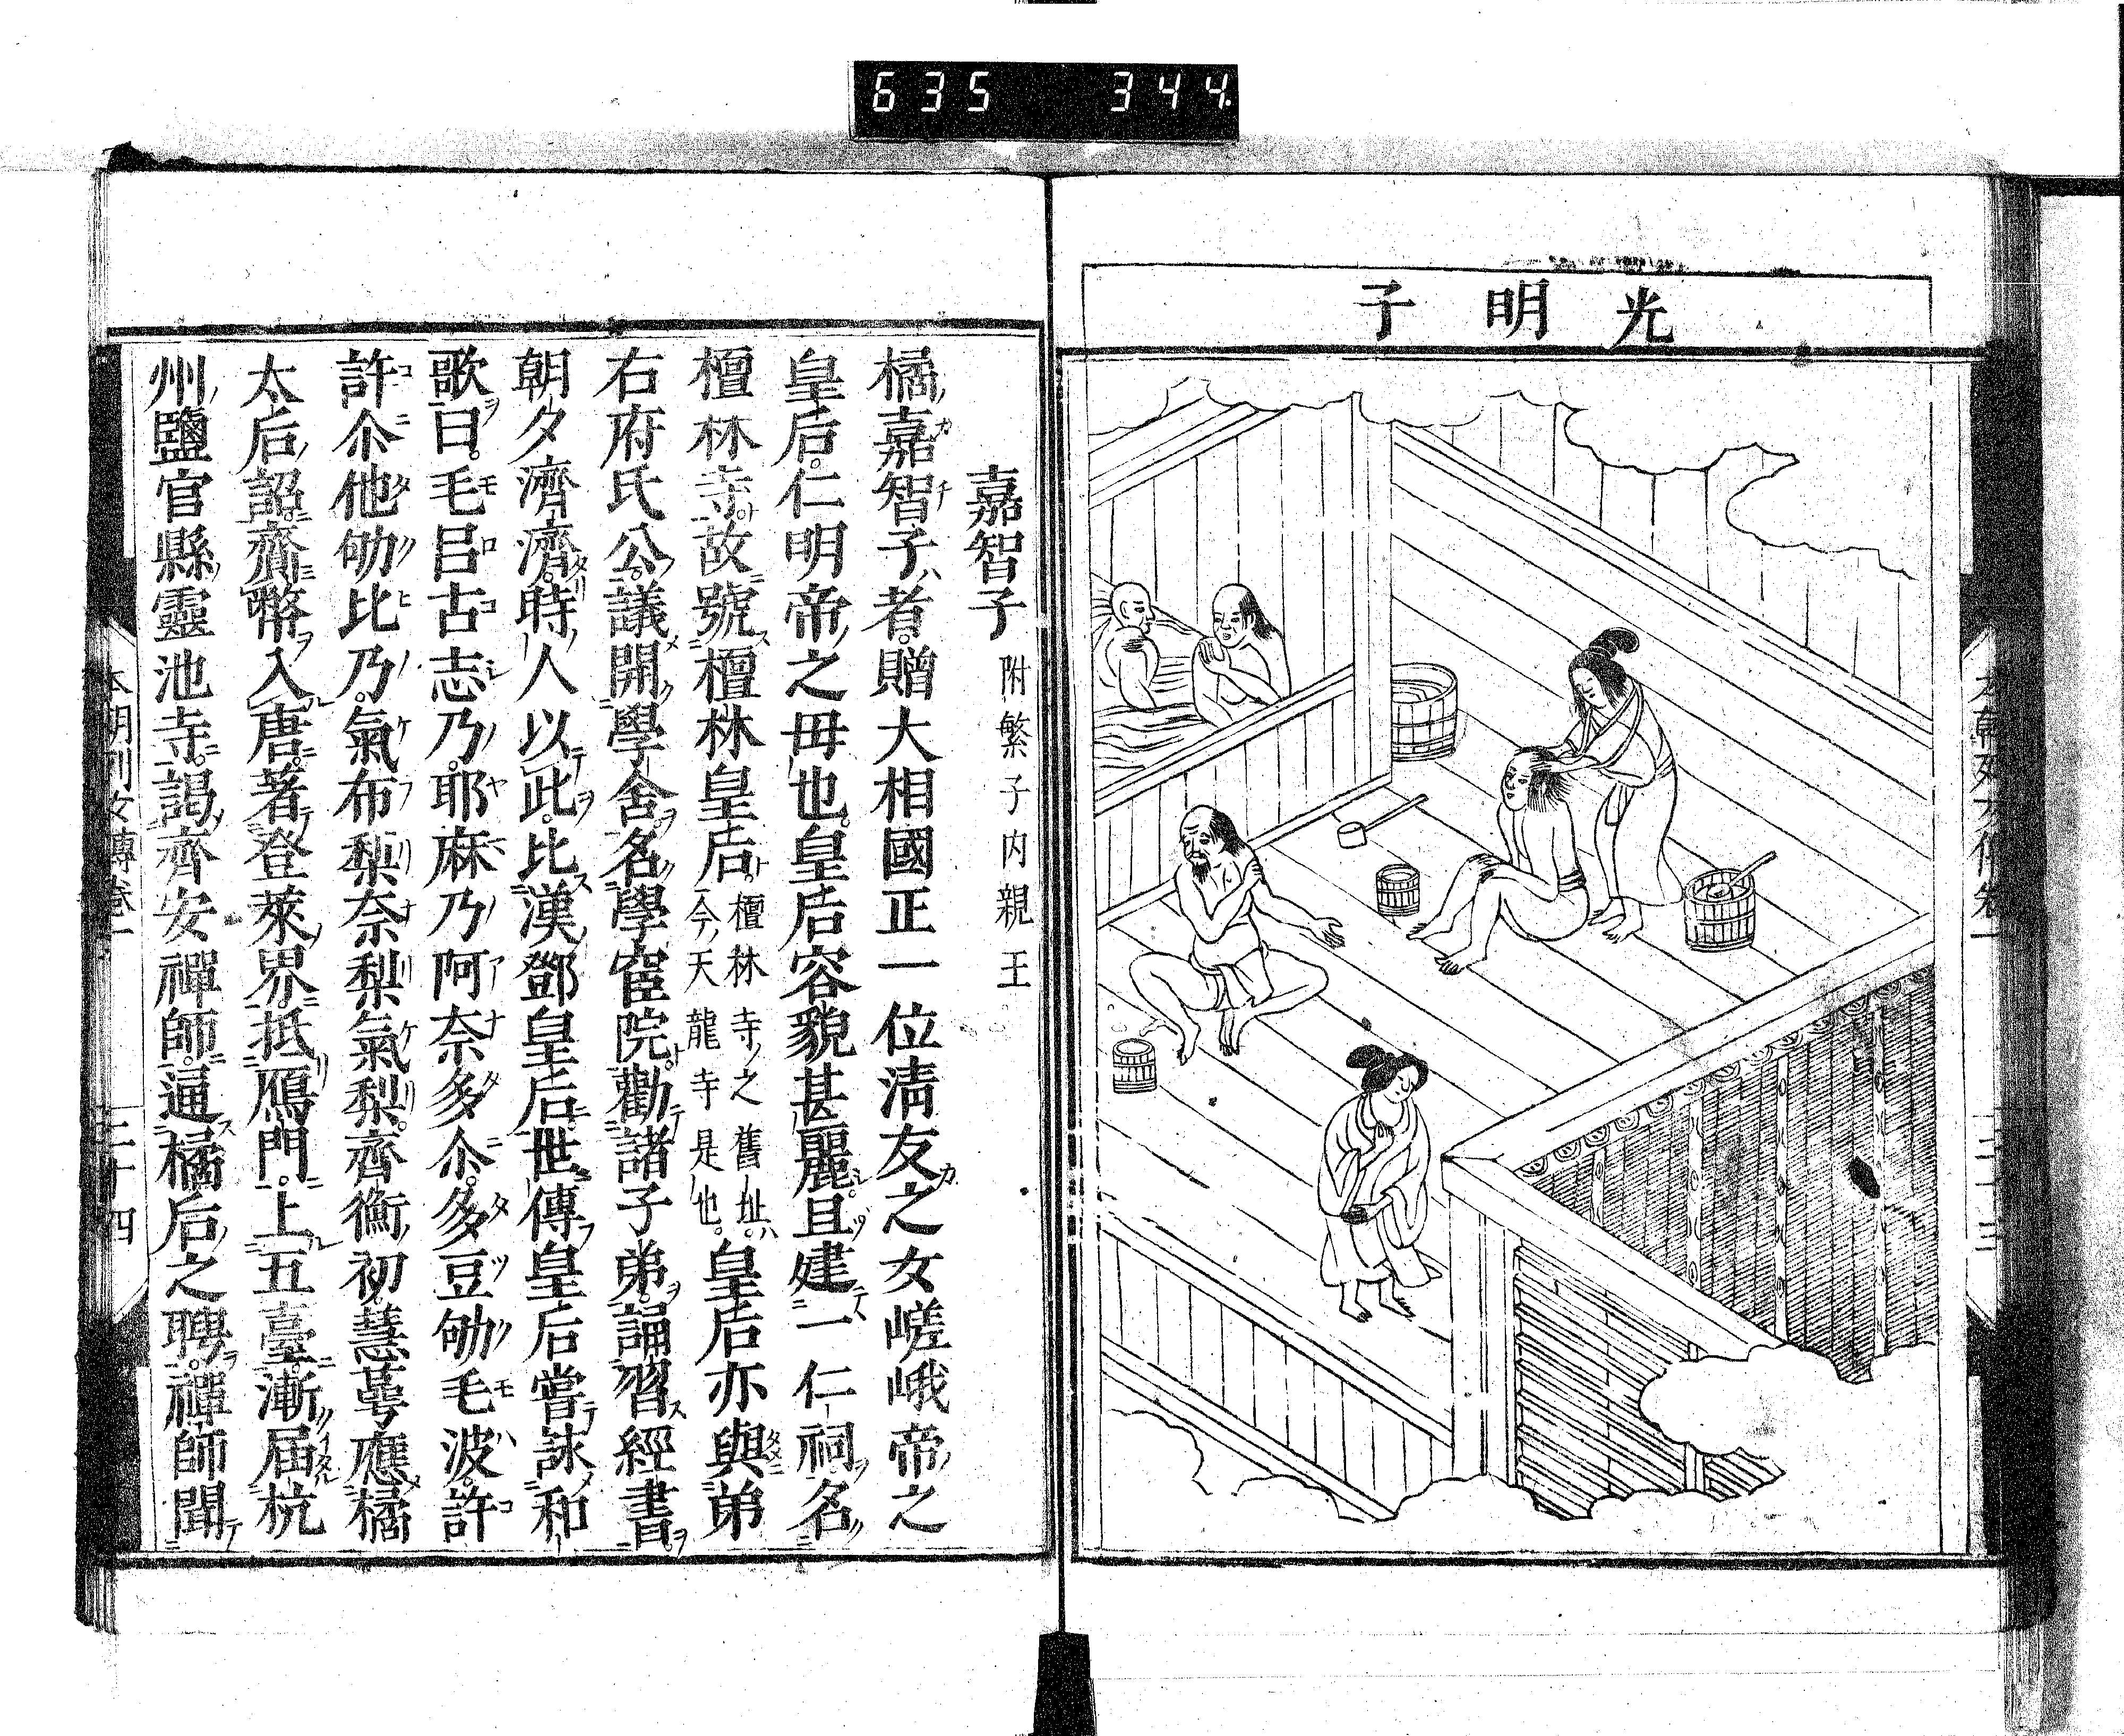 635 344.
光明子
本朝列女傳卷一
三十三
嘉智子 附繁子内親王
橘嘉智子者。贈大相國正一位清友之女嵯峨帝之
皇后。仁明帝之母也。皇后容貌甚麗。且建一仁祠名
檀林寺。故號檀林皇后。檀林寺之舊址。今天龍寺是也。皇后亦與弟
右府氏公。議開學舍。名學宦院。勸諸子弟。誦習經書
朝夕濟濟。時人以此。比漢鄧皇后。世傳皇后嘗詠和
歌曰。毛呂古志乃。耶麻乃阿奈多尒。多豆劬毛波。許
許尒他劬比乃。氣布梨奈梨氣梨。齊衡初。慧萼應橘
太后詔。齎幣入唐。著登萊界。抵鴈門。上五臺。漸届杭
州鹽官縣靈池寺。謁齊安禪師。通橘后之聘。禪師聞
本朝列女傳卷一
三十四